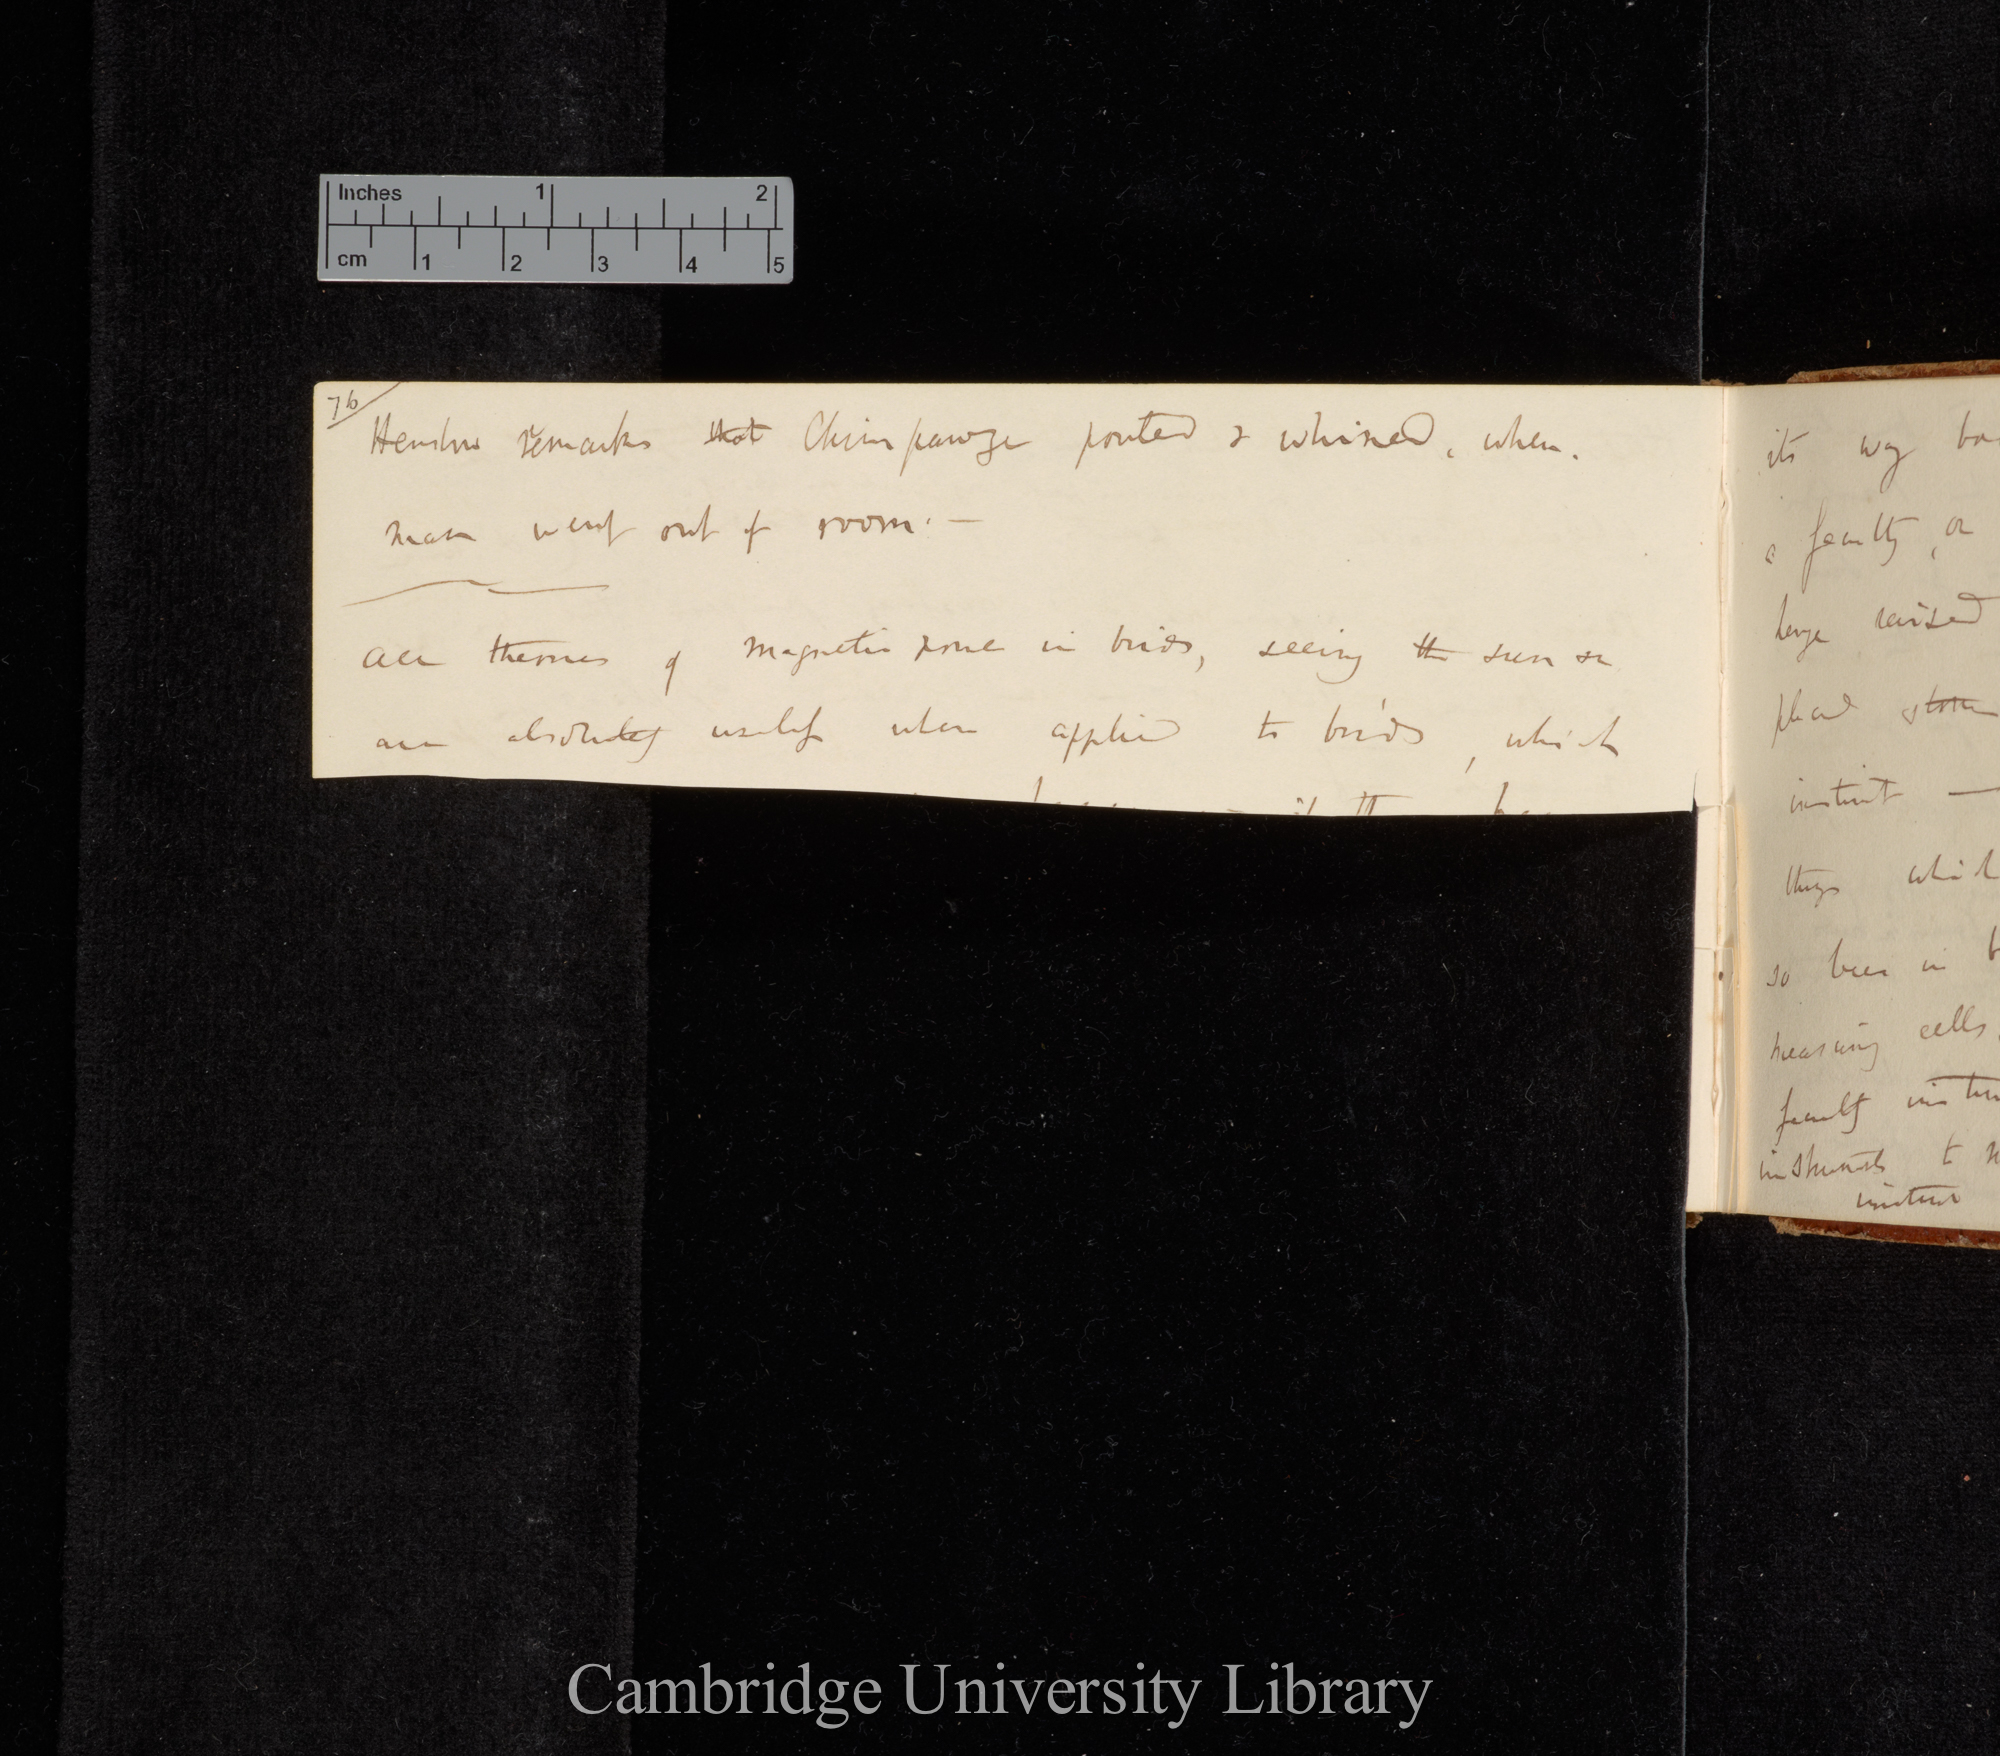 Inches 1 2
cm 1 2 3 4 5
76
Henslow remarks that Chimpanze pouted & whined, when
man went out of room. —
All theories of magnetic zone in birds, seeing the sun &c
are absolutely useless when applied to birds, which
its way
a faculty, or
large raised
placed
instinct —
things which
so bees in
measuring cells
faculty
instruments to
instinct
Cambridge University Library